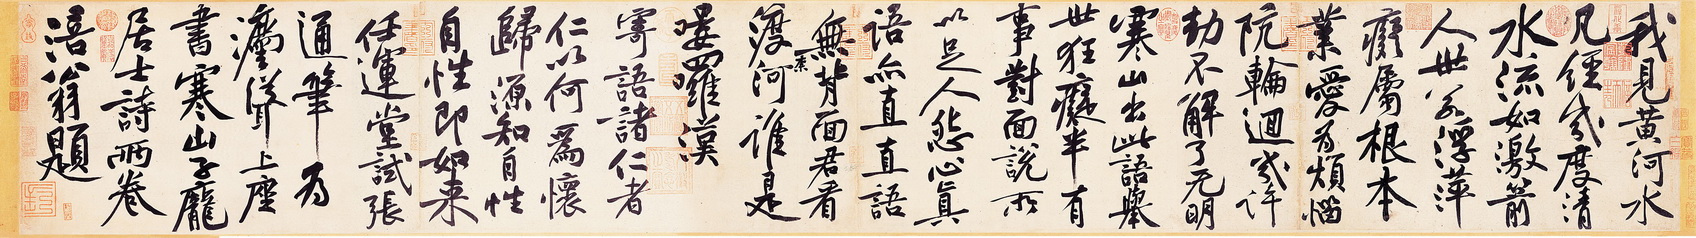 我見黃河水
凡經幾度清
水流如激箭
人世若浮萍
癡屬根本
業愛為煩惱
阬輪迴幾許
劫不解了无明
寒山出此語舉
世狂癡半有
事對面說所
以足人怨心真
語亦直直語
無背面君看
渡柰河誰是
嘍囉漢
寄語諸仁者
仁以何為懷
歸源知自性
自性即如來
任運堂試張
通筆為
灋聳上座
書寒山子龐
居士詩兩卷
涪翁題